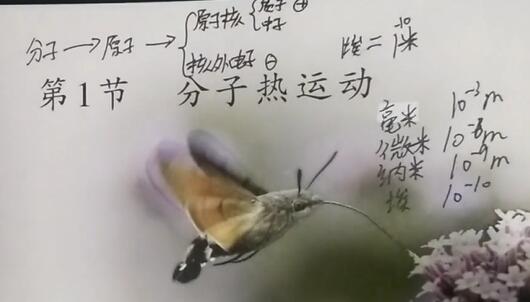 分子→原子→{原子核{质子⊕
中子
核外电子⊖
埃=10⁻¹⁰米
第1节 分子热运动
毫米 10⁻³m
微米 10⁻⁶m
纳米 10⁻⁹m
埃 10⁻¹⁰